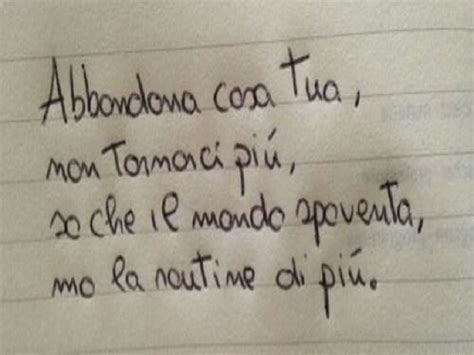 Abbandona casa tua,
non tornarci più,
so che il mondo spaventa,
ma la routine di più.